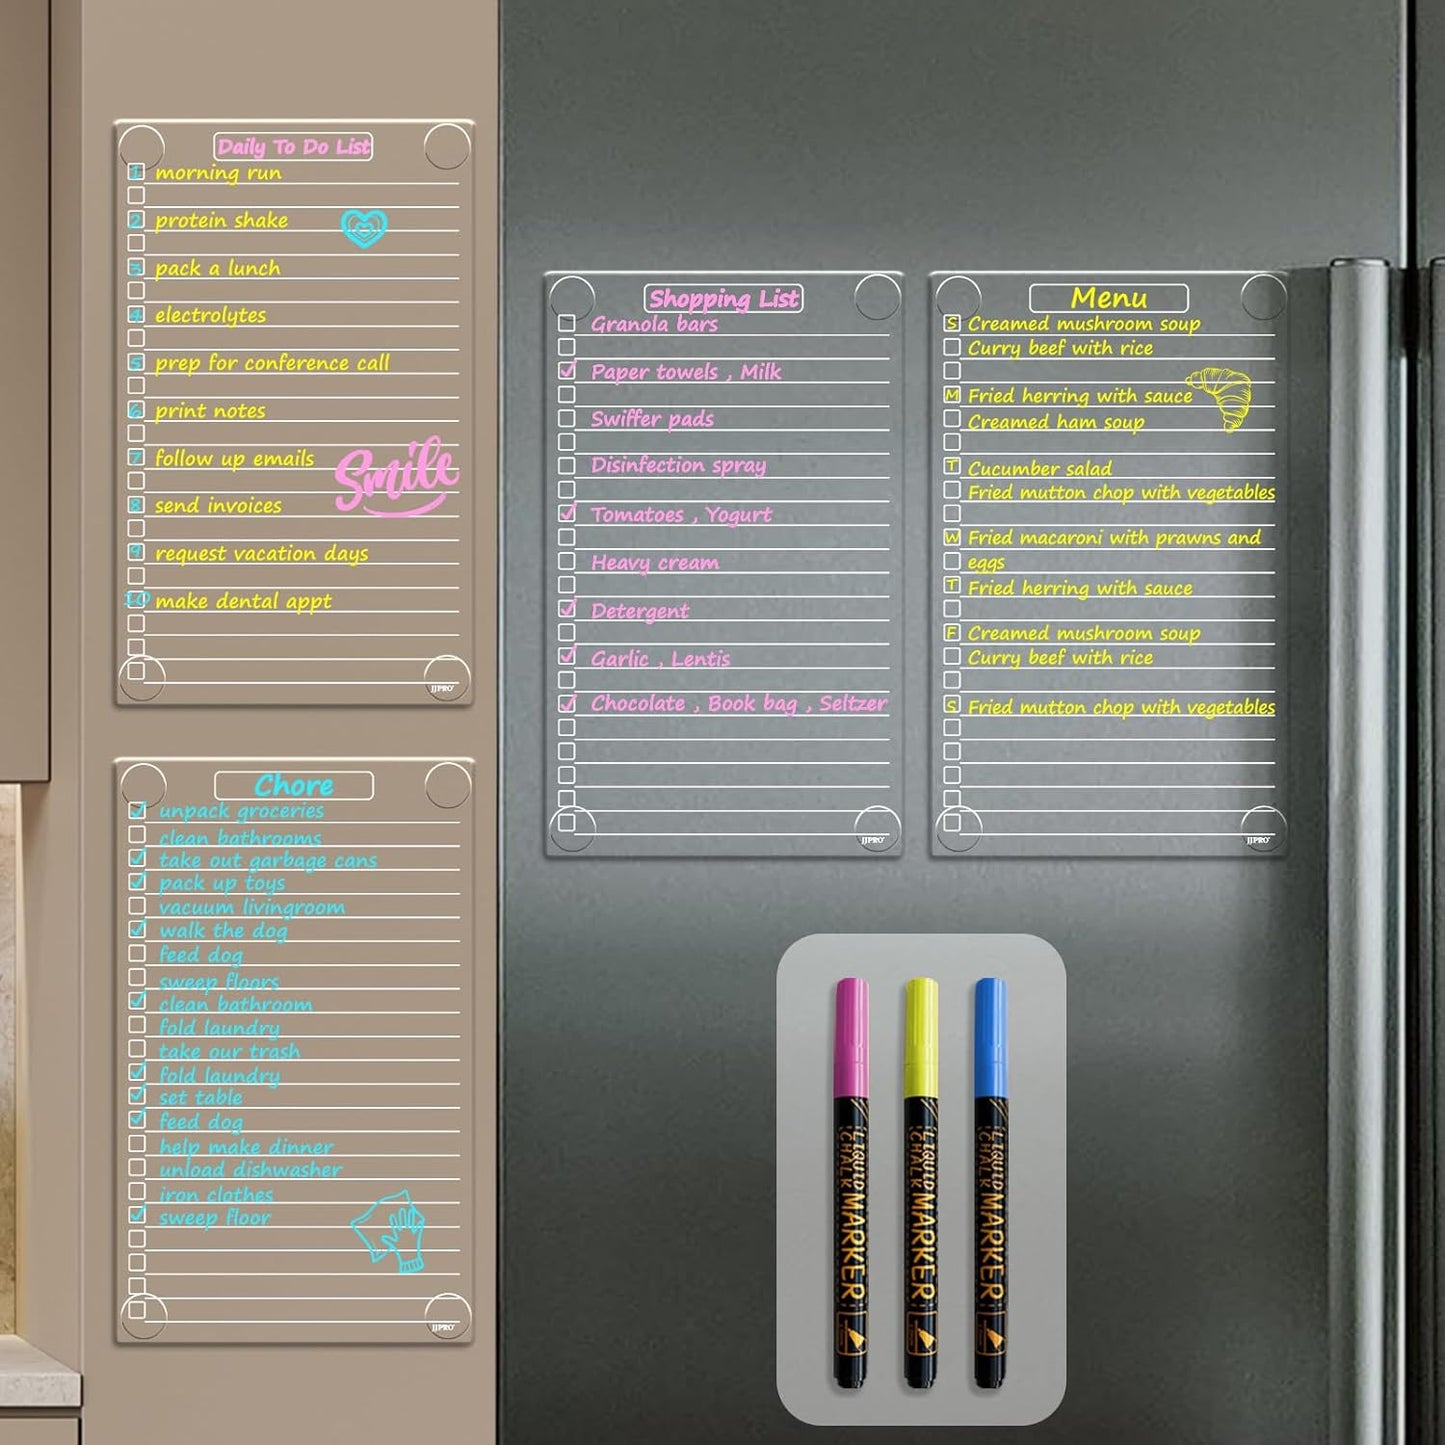 Daily To Do List
1 morning run
2 protein shake
3 pack a lunch
4 electrolytes
5 prep for conference call
6 print notes
7 follow up emails
Smile
8 send invoices
9 request vacation days
10 make dental appt
JJPRO
Chore
unpack groceries
clean bathrooms
take out garbage cans
pack up toys
vacuum livingroom
walk the dog
feed dog
sweep floors
clean bathroom
fold laundry
take our trash
fold laundry
set table
feed dog
help make dinner
unload dishwasher
iron clothes
sweep floor
JJPRO
Shopping List
Granola bars
Paper towels , Milk
Swiffer pads
Disinfection spray
Tomatoes , Yogurt
Heavy cream
Detergent
Garlic , Lentis
Chocolate , Book bag , Seltzer
JJPRO
Menu
S Creamed mushroom soup
Curry beef with rice
M Fried herring with sauce
Creamed ham soup
T Cucumber salad
Fried mutton chop with vegetables
W Fried macaroni with prawns and
eggs
T Fried herring with sauce
F Creamed mushroom soup
Curry beef with rice
S Fried mutton chop with vegetables
JJPRO
LIQUID
CHALK MARKER
LIQUID
CHALK MARKER
LIQUID
CHALK MARKER